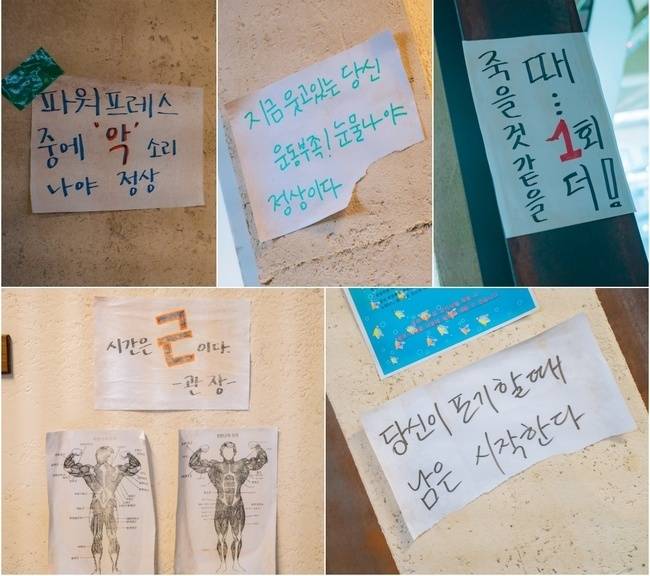 파워프레스
중에 '악' 소리
나야 정상
지금 웃고있는 당신
운동부족! 눈물나야
정상이다
죽을것 같을
때... 1회
더!
시간은 근이다.
-관장-
당신이 포기할때
남은 시작한다